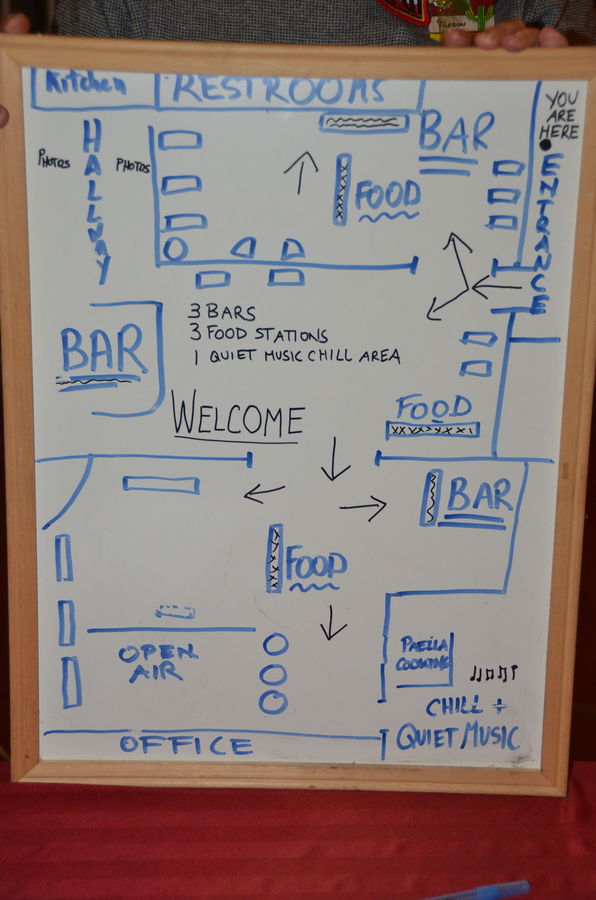 Tucson
Kitchen
RESTROOMS
YOU
ARE
HERE
ENTRANCE
HALLWAY
PHOTOS
PHOTOS
BAR
FOOD
3 BARS
3 FOOD STATIONS
1 QUIET MUSIC CHILL AREA
BAR
WELCOME
FOOD
BAR
FOOD
OPEN
AIR
PAELLA
COOKING
CHILL +
QUIET MUSIC
OFFICE